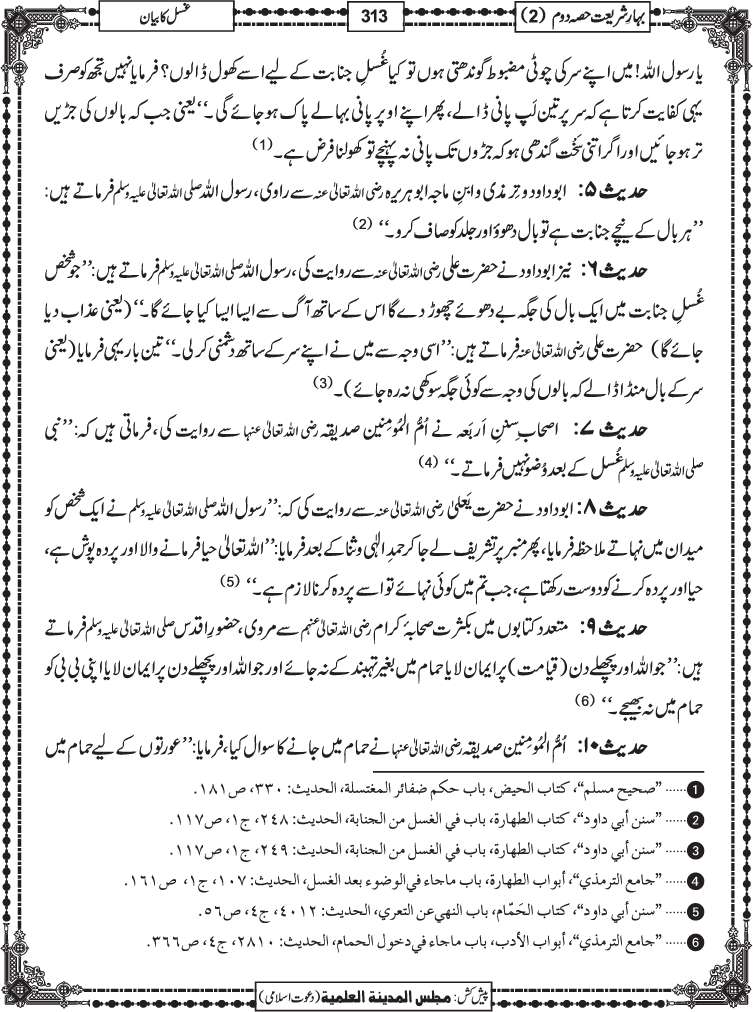 بہارِ شریعت حصہ دوم (2)
313
غسل کا بیان
یا رسول اللہ! میں اپنے سر کی چوٹی مضبوط گوندھتی ہوں تو کیا غُسلِ جنابت کے لیے اسے کھول ڈالوں؟ فرمایا نہیں تجھ کو صرف
یہی کفایت کرتا ہے کہ سر پر تین لَپ پانی ڈالے، پھر اپنے اوپر پانی بہالے پاک ہو جائے گی۔‘‘ یعنی جب کہ بالوں کی جڑیں
تر ہو جائیں اور اگر اتنی سَخْت گندھی ہو کہ جڑوں تک پانی نہ پہنچے تو کھولنا فرض ہے۔ (1)
حدیث ۵: ابو داود و تِرمذی و ابنِ ماجہ ابوہریرہ رضی اللہ تعالیٰ عنہ سے راوی، رسول اللہ صلی اللہ تعالیٰ علیہ وسلم فرماتے ہیں:
’’ہر بال کے نیچے جنابت ہے تو بال دھوؤ اور جلد کو صاف کرو۔‘‘ (2)
حدیث ۶: نیز ابو داود نے حضرت علی رضی اللہ تعالیٰ عنہ سے روایت کی، رسول اللہ صلی اللہ تعالیٰ علیہ وسلم فرماتے ہیں: ’’جو شخص
غُسلِ جنابت میں ایک بال کی جگہ بے دھوئے چھوڑ دے گا اس کے ساتھ آگ سے ایسا ایسا کیا جائے گا۔‘‘ (یعنی عذاب دیا
جائے گا) حضرت علی رضی اللہ تعالیٰ عنہ فرماتے ہیں: ’’اسی وجہ سے میں نے اپنے سر کے ساتھ دشمنی کر لی۔‘‘ تین بار یہی فرمایا (یعنی
سر کے بال منڈا ڈالے کہ بالوں کی وجہ سے کوئی جگہ سوکھی نہ رہ جائے)۔ (3)
حدیث ۷: اصحابِ سننِ اَربَعہ نے اُمُّ المُومِنین صدیقہ رضی اللہ تعالیٰ عنہا سے روایت کی، فرماتی ہیں کہ: ’’نبی
صلی اللہ تعالیٰ علیہ وسلم غُسل کے بعد وُضو نہیں فرماتے۔‘‘ (4)
حدیث ۸: ابو داود نے حضرت یَعلیٰ رضی اللہ تعالیٰ عنہ سے روایت کی کہ: ’’رسول اللہ صلی اللہ تعالیٰ علیہ وسلم نے ایک شخص کو
میدان میں نہاتے ملاحظہ فرمایا، پھر منبر پر تشریف لے جا کر حمدِ الٰہی و ثنا کے بعد فرمایا: ’’اللہ تعالیٰ حیا فرمانے والا اور پردہ پوش ہے،
حیا اور پردہ کرنے کو دوست رکھتا ہے، جب تم میں کوئی نہائے تو اسے پردہ کرنا لازم ہے۔‘‘ (5)
حدیث ۹: متعدد کتابوں میں بکثرت صحابۂ کرام رضی اللہ تعالیٰ عنہم سے مروی، حضورِ اقدس صلی اللہ تعالیٰ علیہ وسلم فرماتے
ہیں: ’’جو اللہ اور پچھلے دن (قیامت) پر ایمان لایا حمام میں بغیر تہبند کے نہ جائے اور جو اللہ اور پچھلے دن پر ایمان لایا اپنی بی بی کو
حمام میں نہ بھیجے۔‘‘ (6)
حدیث ۱۰: اُمُّ المُومِنین صدیقہ رضی اللہ تعالیٰ عنہا نے حمام میں جانے کا سوال کیا، فرمایا: ’’عورتوں کے لیے حمام میں
1 ...... ”صحیح مسلم“، کتاب الحیض، باب حکم ضفائر المغتسلة، الحدیث: ٣٣٠، ص١٨١.
2 ...... ”سنن أبي داود“، کتاب الطهارة، باب في الغسل من الجنابة، الحدیث: ٢٤٨، ج١، ص١١٧.
3 ...... ”سنن أبي داود“، کتاب الطهارة، باب في الغسل من الجنابة، الحدیث: ٢٤٩، ج١، ص١١٧.
4 ...... ”جامع الترمذي“، أبواب الطهارة، باب ماجاء في الوضوء بعد الغسل، الحدیث: ١٠٧، ج١، ص١٦١.
5 ...... ”سنن أبي داود“، کتاب الحَمّام، باب النهي عن التعري، الحدیث: ٤٠١٢، ج٤، ص٥٦.
6 ...... ”جامع الترمذي“، أبواب الأدب، باب ماجاء في دخول الحمام، الحدیث: ٢٨١٠، ج٤، ص٣٦٦.
پیش کش: مجلس المدينة العلمية (دعوت اسلامی)